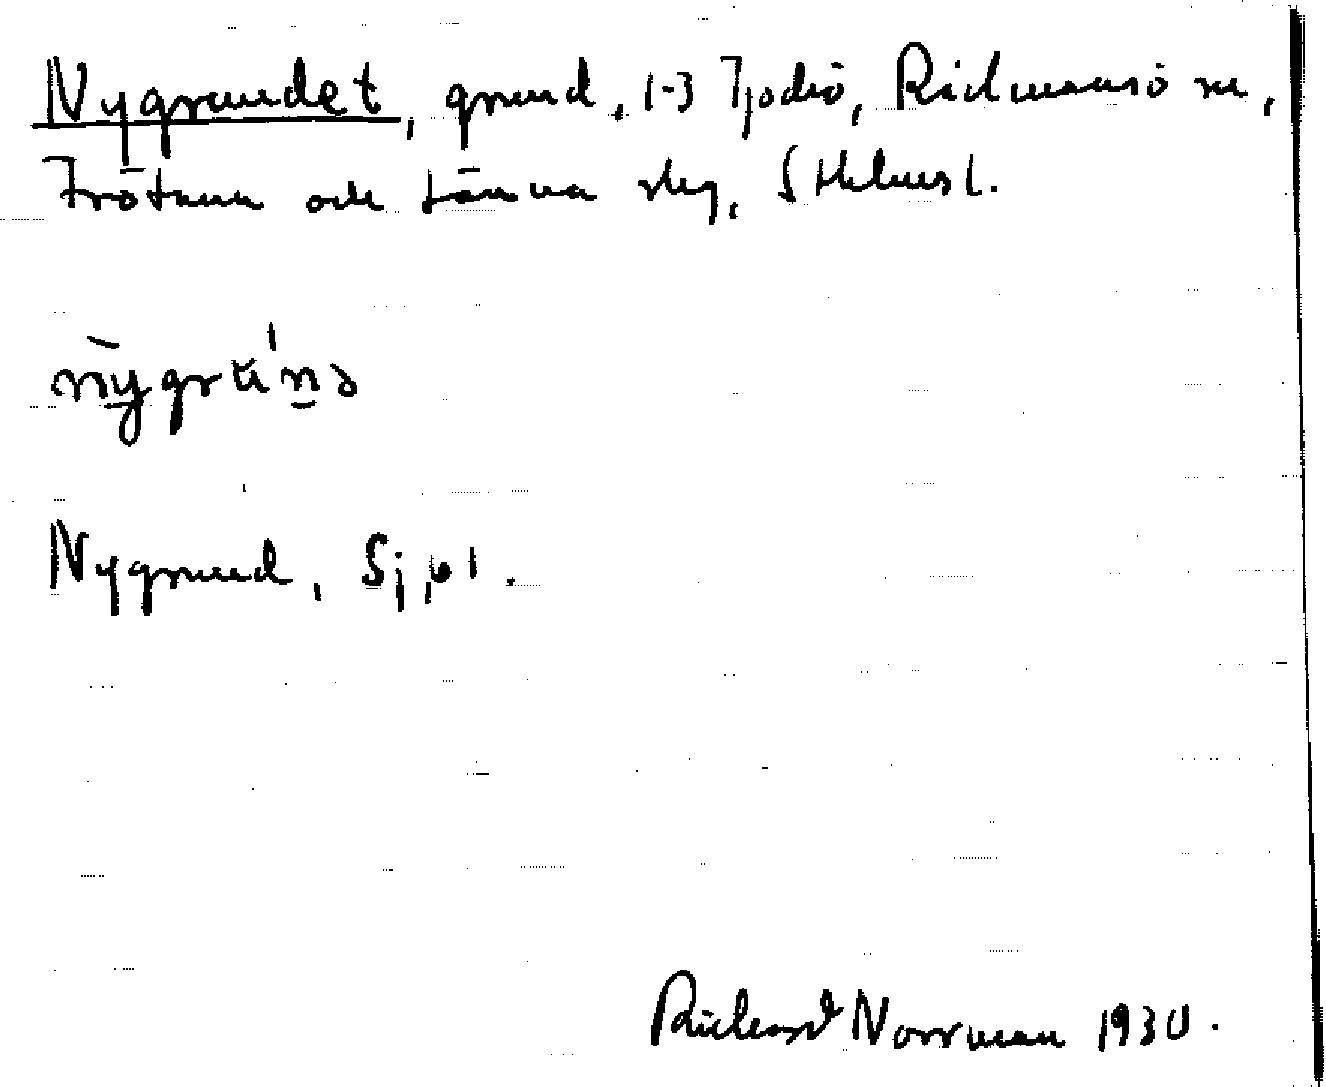 Nygrundet, grund, 1-3 Tjockö, Rådmansö sn,
Frötuna och Länna skg, Sthlms l.
nygrund, Sj
Rickard Norrman 1930.